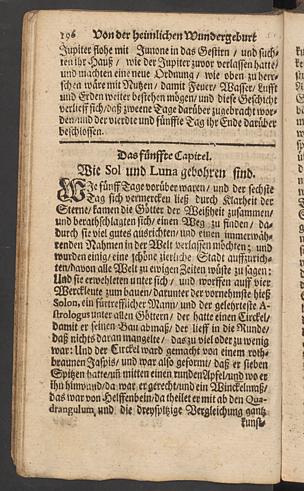 196 Von der heimlichen Wundergeburt
Jupiter flohe mit Junone in das Gestirn / und such-
ten ihr Hauß / wie der Jupiter zuvor verlassen hatte /
und machten eine neue Ordnung / wie oben zu herr-
schen wäre mit Nutzen / damit Feuer / Wasser / Lufft
und Erden weiter bestehen mögen / und diese Geschicht
verlieff sich / daß zweene Tage darüber zugebracht wor-
den / und der vierdte und fünffte Tag ihr Ende darüber
beschlossen.
Das fünffte Capitel.
Wie Sol und Luna gebohren sind.
WJe fünff Tage vorüber waren / und der sechste
Tag sich vermercken ließ durch Klarheit der
Sterne / kamen die Götter der Weißheit zusammen /
und berathschlagten sich / einen Weg zu finden / da-
durch sie viel gutes ausrichten / und einen immerwäh-
renden Nahmen in der Welt verlassen möchten; und
wurden einig / eine schöne zierliche Stadt auffzurich-
ten / davon alle Welt zu ewigen Zeiten wüste zu sagen:
Und sie erwehleten unter sich / und worffen auff vier
Werckleute zum bauen / darunter der vornehmste hieß
Solon, ein fürtrefflicher Mann / und der gelehrteste A-
strologus unter allen Göttern / der hatte einen Circkel /
damit er seinen Bau abmaß / der lieff in die Runde /
daß nichts daran mangelte / das zu viel oder zu wenig
war: Und der Circkel ward gemacht von einem roth-
braunen Jaspis / und war also geformt / daß er sieben
Spitzen hatte / uñ mitten einen runden Apfel / und wo er
ihn hinwand / da war er gerecht / und ein Winckelmaß /
das war von Helffenbein / da theilet er mit ab den Qua-
drangulum, und die dreyspitzige Vergleichung gantz
kunst-